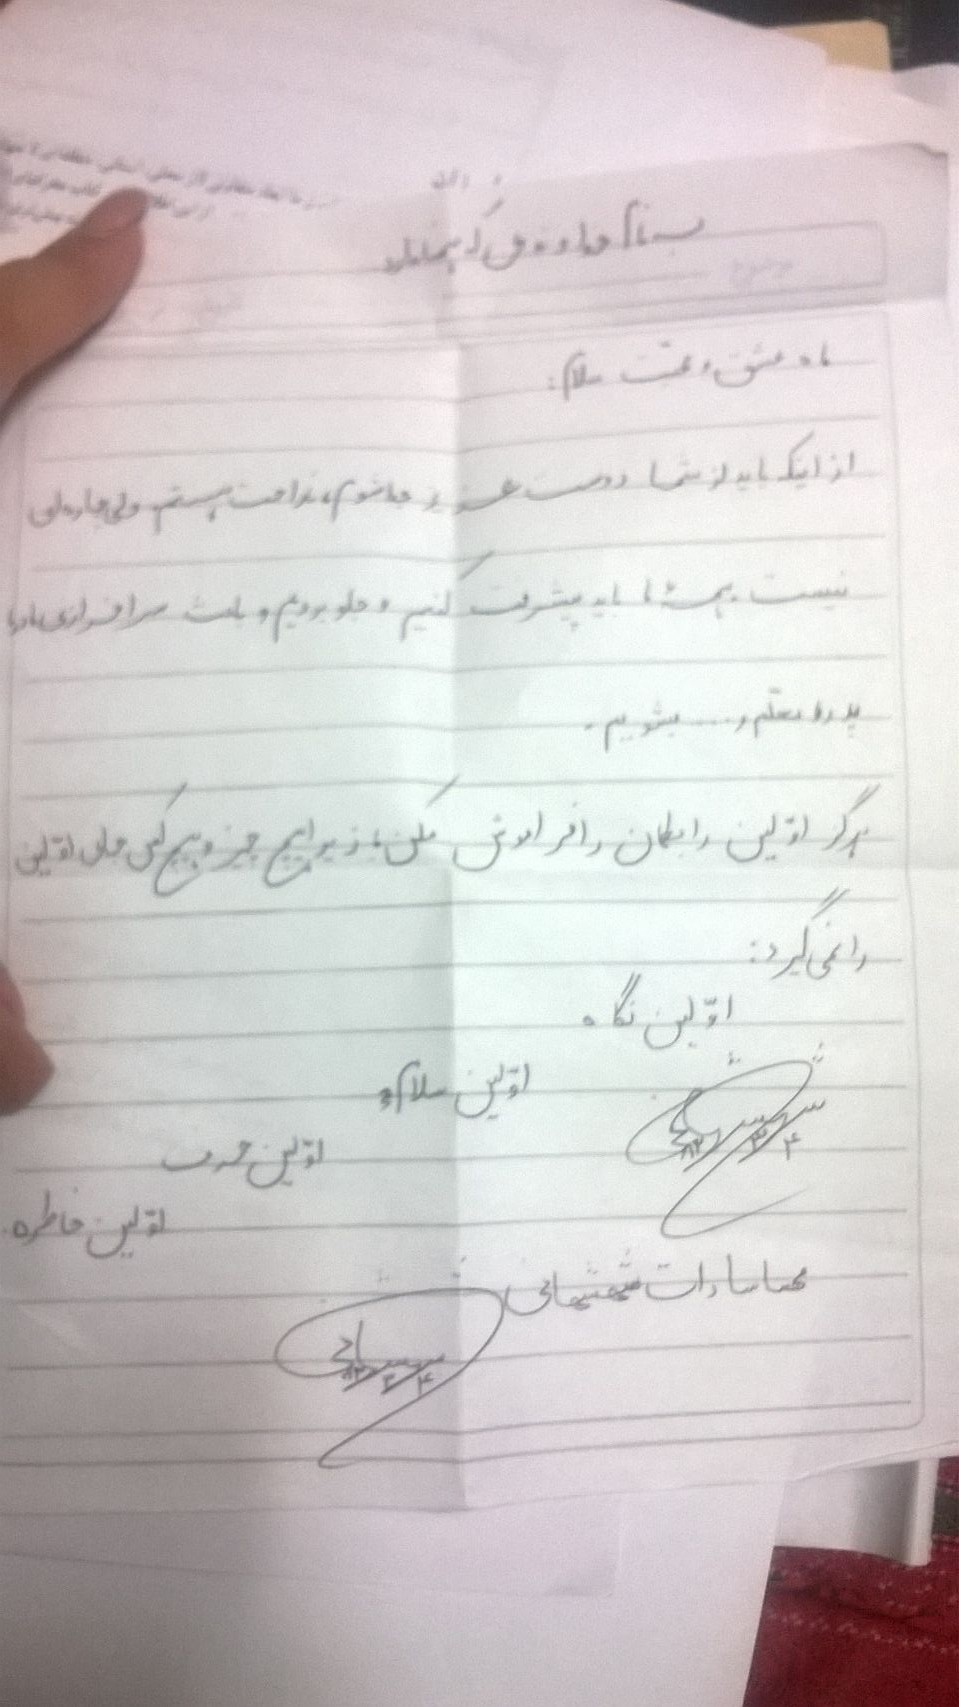 به نام خداوندی که همتا ندارد
موضوع
ماه عشق و محبت سلام:
از اینکه باید از شما دوست عزیز جدا شوم، ناراحت هستم ولی چاره‌ای
نیست همهٔ ما باید پیشرفت کنیم و جلو برویم و باعث سرافرازی مادر،
پدر، معلم و.... بشویم.
هرگز اوّلین رابطمان را فراموش مکن، زیرا هیچ چیز و هیچ کس جای اوّلین
را نمی‌گیرد:
اوّلین نگاه
اوّلین سلام و
اوّلین حرف
اوّلین خاطره.
۸۲/۳/۴
مهسا سادات
۸۲/۳/۴